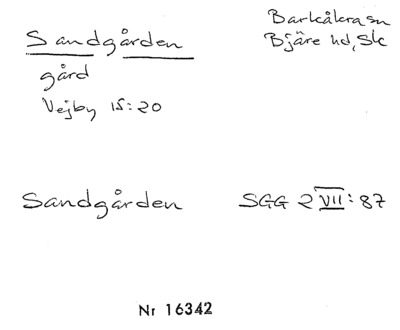 Sandgården
Barkåkra sn
Bjäre hd, Sk
gård
Vejby 15:20
Sandgården
SGG 2 VII: 87
Nr 16342